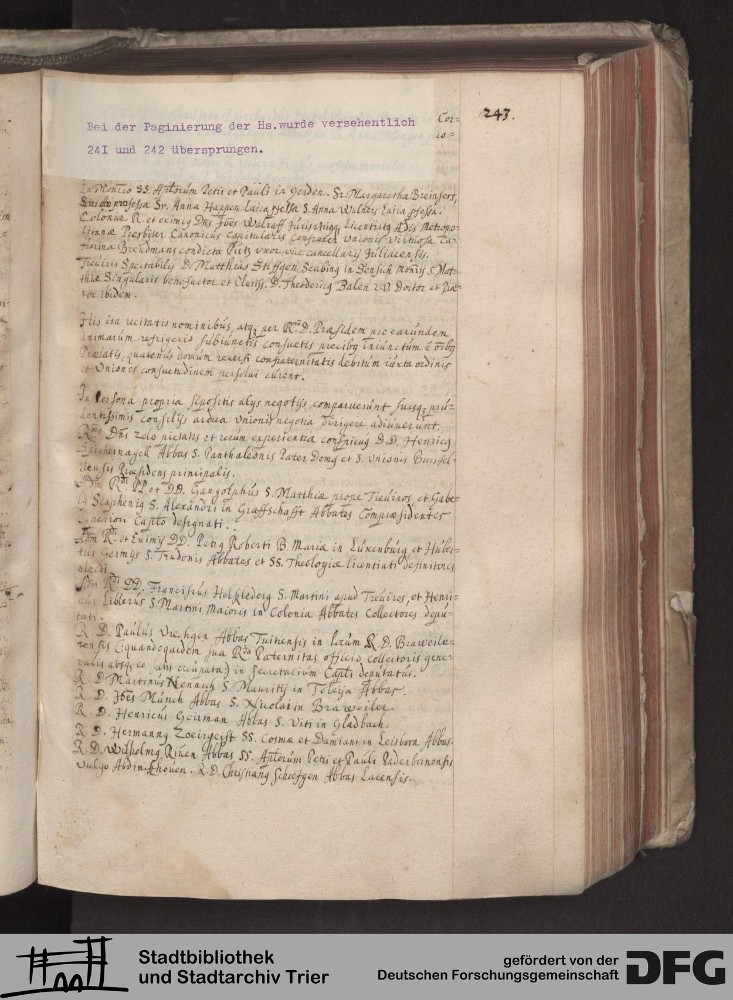 Bei der Paginierung der Hs.wurde versehentlich
241 und 242 übersprungen.
243.
In Monrio SS. Aplorum Petri et Pauli in Sr. Margaretha
professa Sr. Anna Happen laica pfessa S. Anna Walters laica pfessa.
Coloniæ R. et eximiq Dns Joes Walraff Licentiatq Ædis Metropo-
Presbiter Canonicus Capitularis Confrater Unionis Virtuosa Ca-
tharina Brewmans condicta Pütz uxor vice cancellarij Juliacensis.
Treviris Spectabilis D. Matthias Stiffgen Scabinq in Monrij S. Mat-
thiæ Singularis benefactor et Clariss. D. Theodericq Balen Doctor et Præ-
tor ibidem.
His ita recitatis nominibus, atq per Rm D. Præsidem pro earundem
animarum refrigerio subiunctis consuetis precibq iniunctum ē oībq
Prælatis, quatenus domum reversi confraternitatis debitum iuxta ordinis
et Uniones consuetudinem persolui curent.
In Persona propria sepositis alys negotijs comparuerunt suisq pru-
dentissimis consilijs ardua Unionis negotia dirigere adiuverunt.
Rmq Dns zelo pietatis et rerum experientia conspicuq D.D. Henricq
Abbas S. Panthaleonis Pater Domq et S. Unionis Bursfel-
densis Præsidens principalis.
Adm Rdi PP et DD. Gangolphus S. Matthiæ prope Treviros, et Gabe-
S. Alexandri in Graffschafft Abbates Compræsidentes
Caplo designati.
Adm Rdi et Eximij DD. Petrq Roberti B. Mariæ in Luxenburg et Huber-
tus Germijs S. Trudonis Abbates et SS. Theologiæ licentiati definitores
electi.
Adm Rdi DD. Franciscus S. Martini apud Treviros, et Henri-
cus Liblerus S. Martini Maioris in Colonia Abbates Collectores depu-
tati.
R. D. Paulus Abbas Tuitiensis in locum R. D. Brauweile-
rensis (: quandoquidem sua Rda Paternitas officio collectoris gene-
ralis absq eo satis occupata :) in secretarium Capli deputatus.
R. D. Martinus Nennich S. Mauritij in Toleija Abbas.
R. D. Joes Münch Abbas S. Nicolai in Braweiler.
R. D. Henricus Abbas S. Viti in Gladbach.
R. D. Hermannq SS. Cosmæ et Damiani in Leisborn Abbas.
R. D. Wilholmq Abbas SS. Aplorum Petri et Pauli Paderbornensis
vulgo Abdinckhouen. R. D. Christianq Scheefgen Abbas Lacensis.
Stadtbibliothek
und Stadtarchiv Trier
gefördert von der
Deutschen Forschungsgemeinschaft
DFG